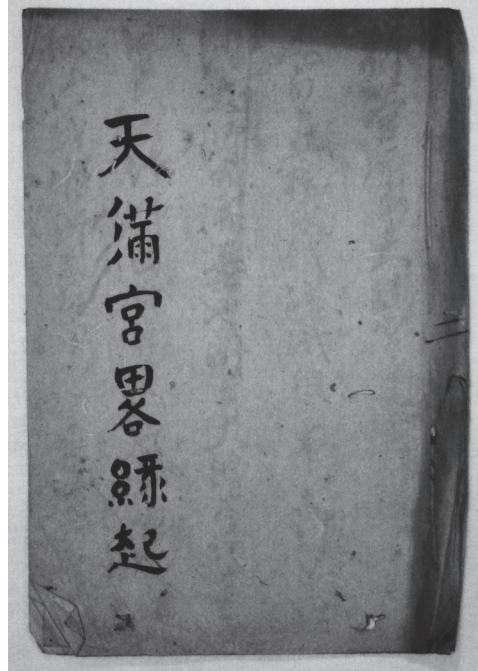 天満宮畧縁起